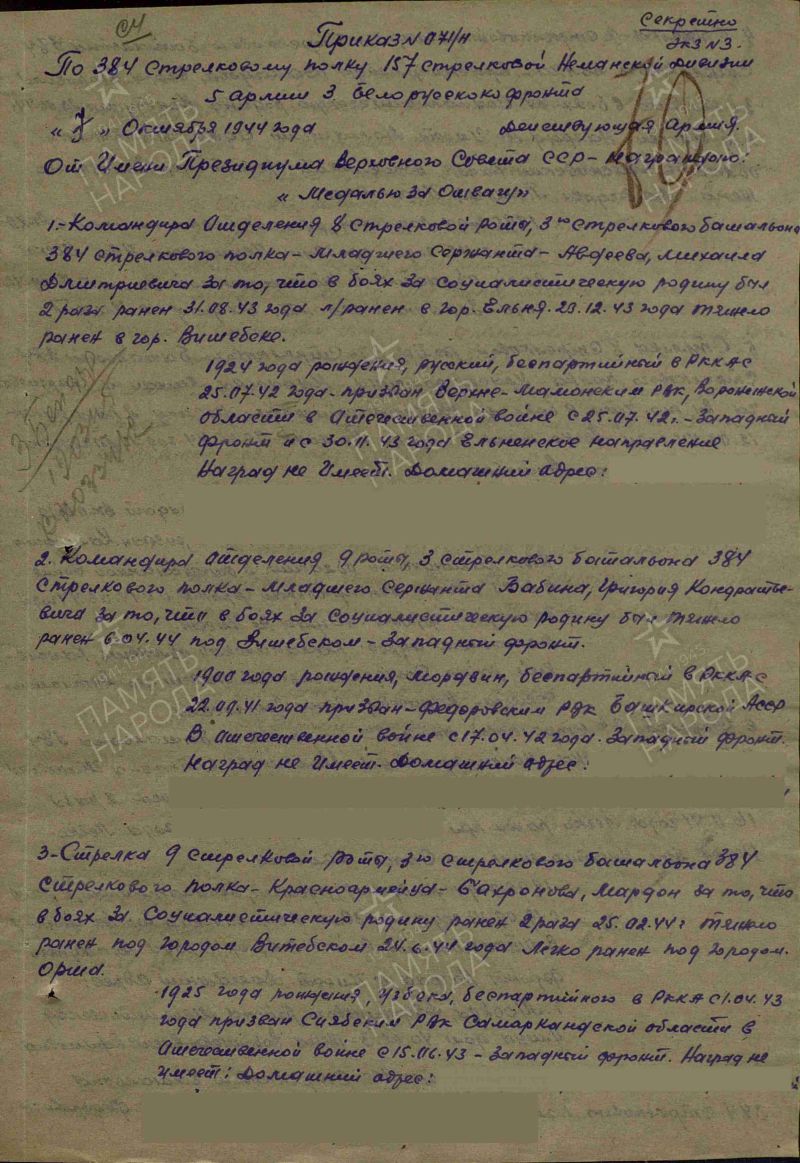 Секретно
Экз №3.
Приказ № 071/н
По 384 стрелковому полку 157 стрелковой Неманской дивизии
5 армии 3 Белорусского фронта
« 7 » Октября 1944 года Действующая Армия.
От Имени Президиума Верховного Совета СССР – Награждаю:
« Медалью За Отвагу »
1.- Командира Отделения 8 Стрелковой роты, 3го Стрелкового батальона
384 стрелкового полка – Младшего Сержанта – Авдеева, Михаила
Дмитриевича За то, что в боях За Социалистическую родину был
2 раза ранен 31.08.43 года л/ранен в гор. Ельня. 29.12.43 года тяжело
ранен в гор. Витебске.
1924 года рождения, русский, беспартийный в РККА с
25.07.42 года – призван Верхне-Мамонским РВК, Воронежской
области в Отечественной войне с 25.07.42г. – Западный
фронт и с 30.11.43 года Ельненское направление
Наград не Имеет. Домашний адрес:
2. Командира Отделения 9 роты, 3 стрелкового батальона 384
стрелкового полка – Младшего Сержанта Бабина, Григория Кондратье-
вича За то, что в боях За Социалистическую родину был тяжело
ранен 6.04.44 под Витебском – Западный фронт.
1900 года рождения, Мордвин, беспартийный в РККА с
22.09.41 года призван – Федоровским РВК Башкирской АССР
В Отечественной войне с 17.04.42 года. Западный фронт.
Наград не Имеет. Домашний адрес:
3- Стрелка 9 стрелковой роты, 3го стрелкового батальона 384
Стрелкового полка – Красноармейца – Бахронова, Мардон за то, что
в боях За Социалистическую родину ранен 2 раза 25.02.44г тяжело
ранен под городом Витебском 24.6.44 года Легко ранен под городом
Орша.
1925 года рождения, Узбека, беспартийного в РККА с 1.04.43
года призван Сиябским РВК Самаркандской области в
Отечественной войне с 15.06.43 – Западный фронт. Наград не
имеет: Домашний адрес:
ПАМЯТЬ НАРОДА